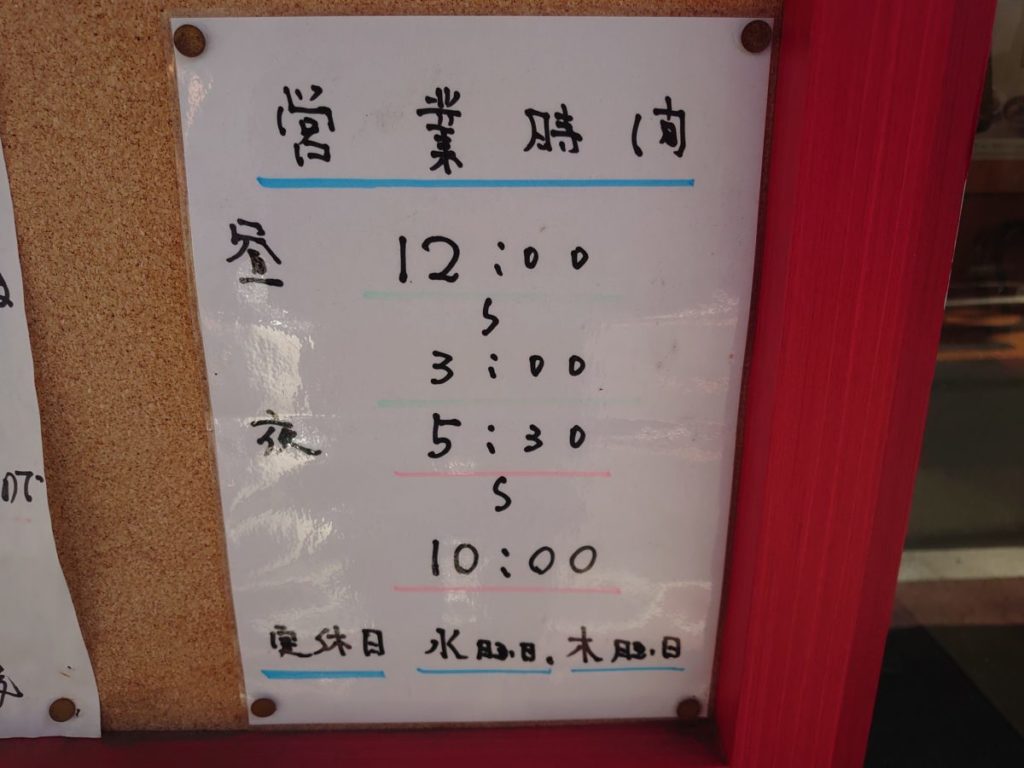 営業時間
昼 12:00
〜
3:00
夜 5:30
〜
10:00
定休日 水曜日.木曜日